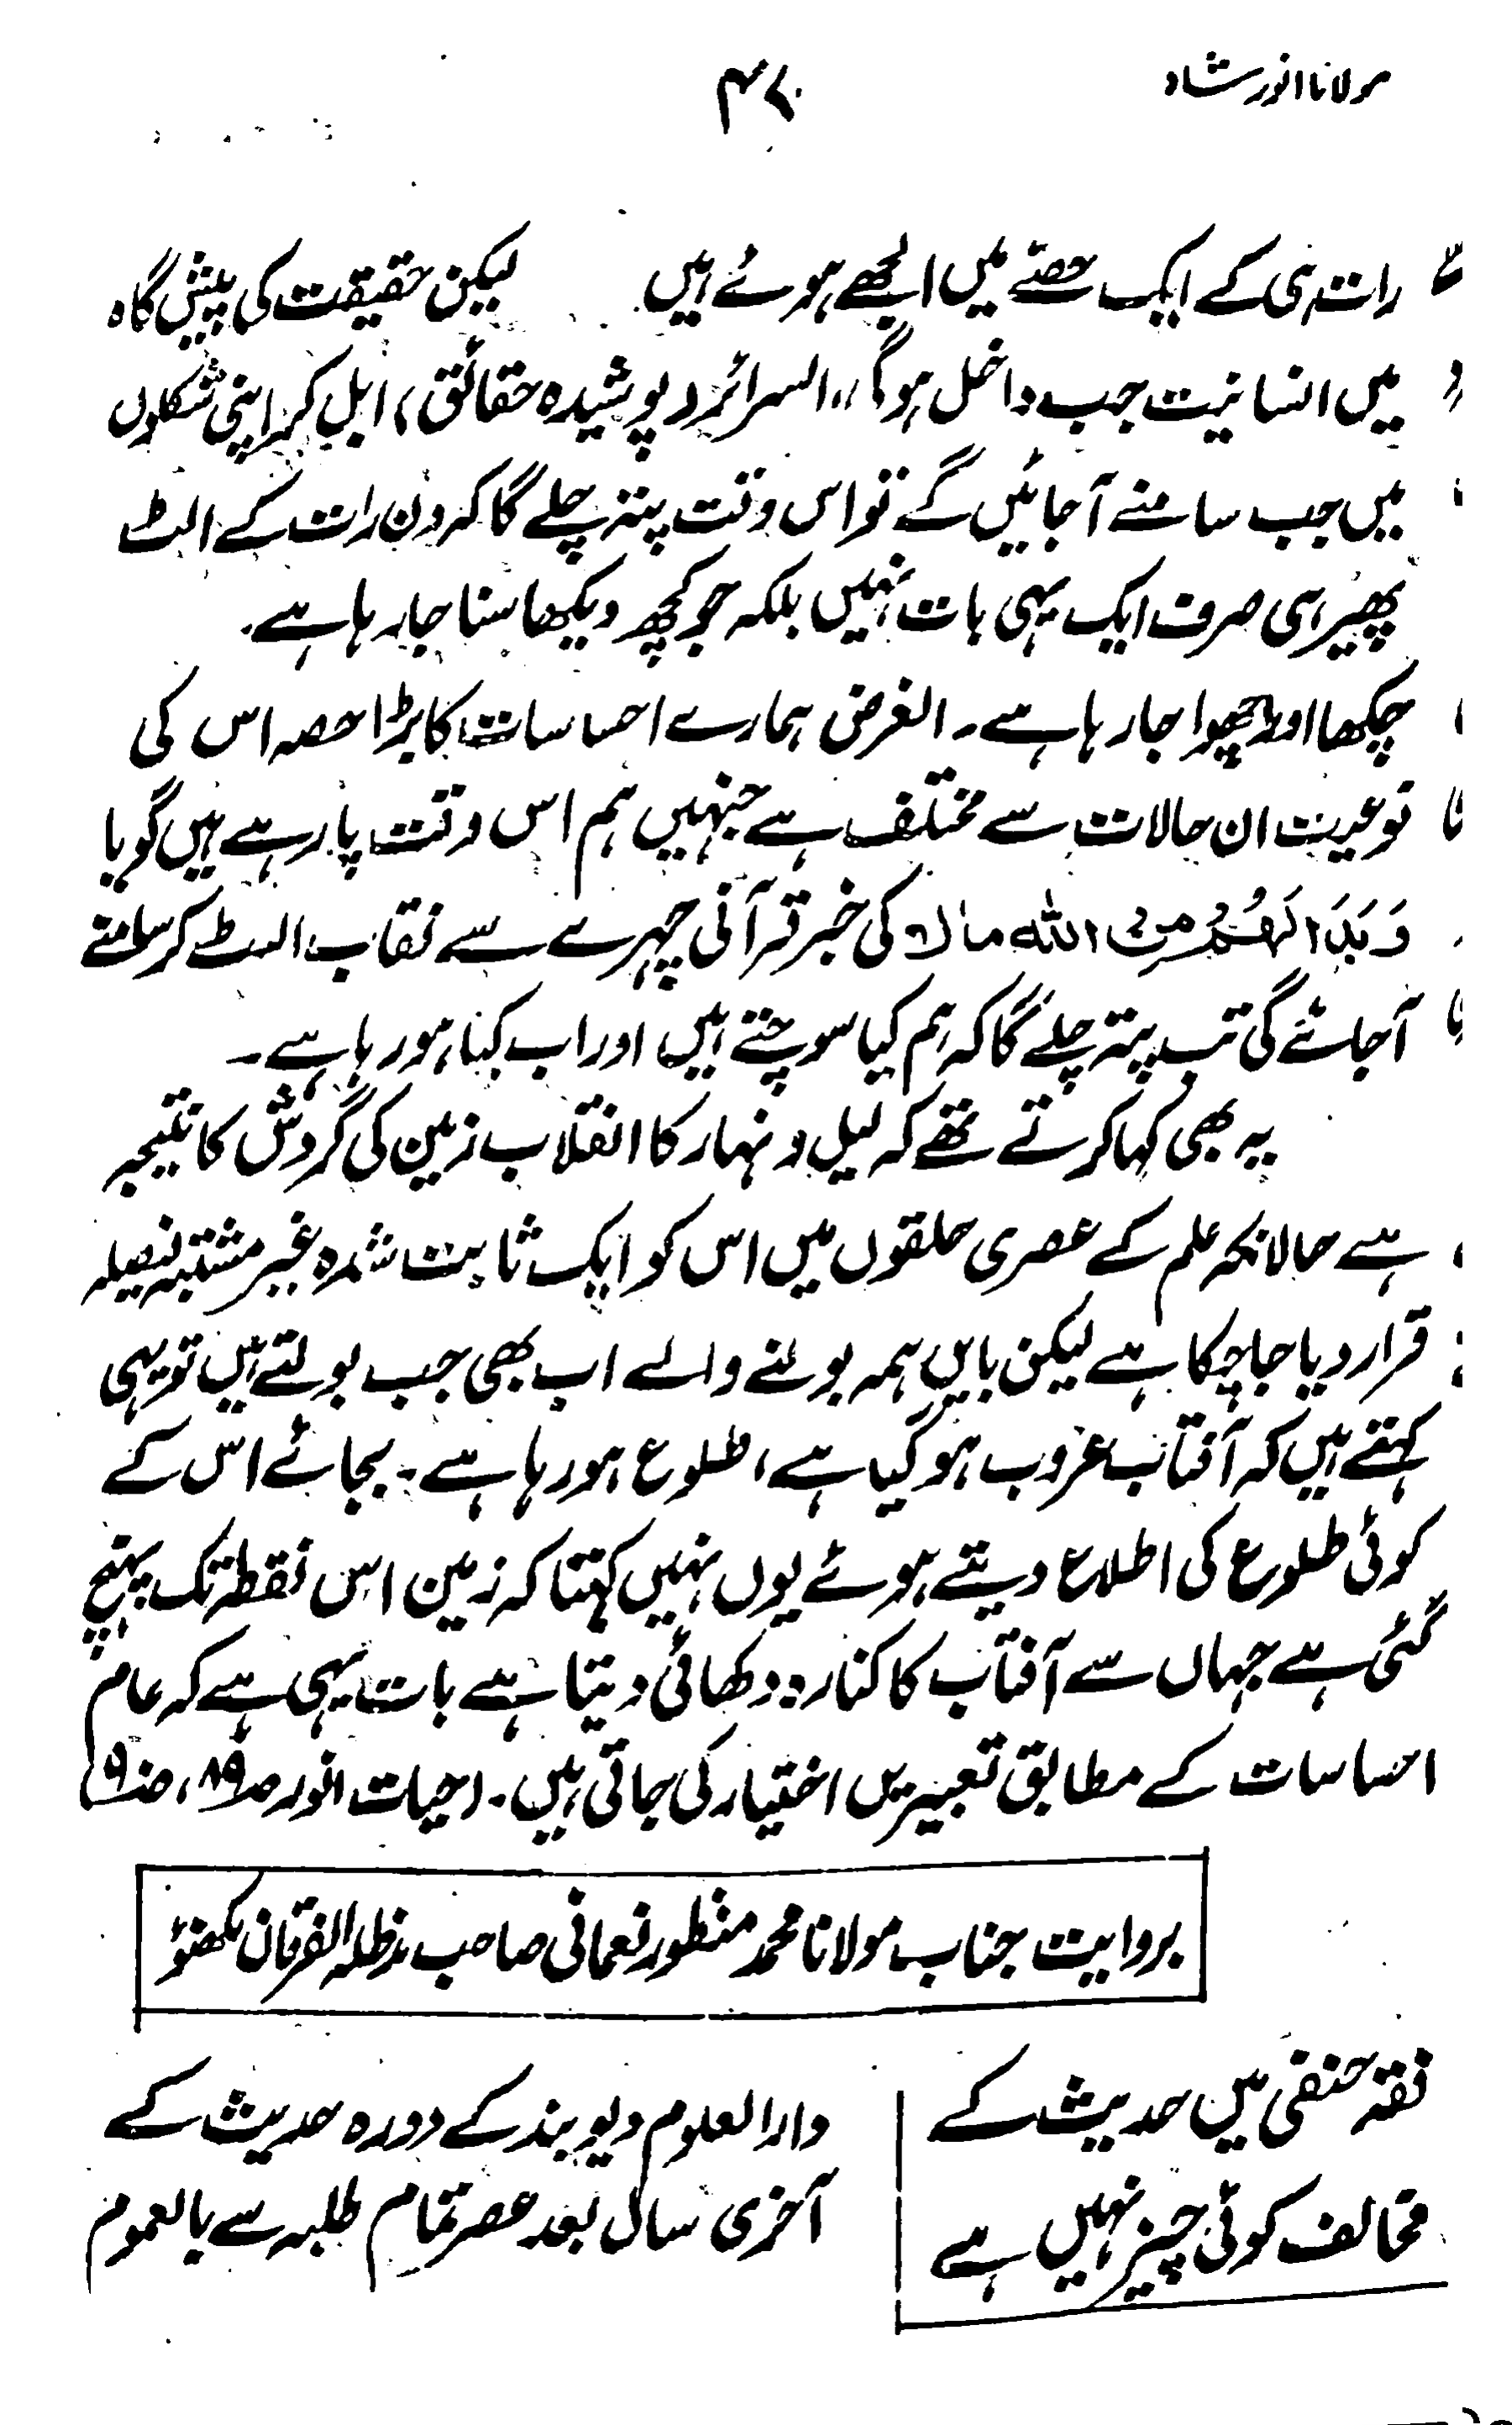 مولانا انور شاہ
رات ہی کے ایک حصّے میں الجھے ہوئے ہیں لیکن حقیقت کی پیش گاہ
میں انسانیت جب داخل ہوگی،، السرائر (پوشیدہ حقائق، ابل کر اپنی شکلوں
میں جب سامنے آجائیں گے تو اس وقت پتہ چلے گا کہ دن رات کے الٹ
پھیر ہی صرف ایک یہی بات نہیں بلکہ جو کچھ دیکھا سنا جا رہا ہے۔
چکھا اور چھوا جا رہا ہے۔ الغرض ہمارے احساسات کا بڑا حصہ اس کی
نوعیت ان حالات سے مختلف ہے جنہیں ہم اس وقت پا رہے ہیں گویا
وَبَدَا لَهُمْ مِنَ اللّٰه مالا کی خبر قرآنی چہرے سے نقاب الٹ کر سامنے
آجائے گی تب پتہ چلے گا کہ ہم کیا سوچتے ہیں اور اب کیا ہو رہا ہے۔
یہ بھی کہا کرتے تھے کہ لیل و نہار کا انقلاب زمین کی گردش کا نتیجہ
ہے حالانکہ علم کے عصری حلقوں میں اس کو ایک ثابت شدہ غیر مشتبہ فیصلہ
قرار دیا جا چکا ہے لیکن بایں ہمہ بولنے والے اب بھی جب بولتے ہیں تو یہی
کہتے ہیں کہ آفتاب غروب ہو گیا ہے، طلوع ہو رہا ہے۔ بجائے اس کے
کوئی طلوع کی اطلاع دیتے ہوئے یوں نہیں کہتا کہ زمین اس نقطہ تک پہنچ
گئی ہے جہاں سے آفتاب کا کنارہ دکھائی دیتا ہے بات یہی ہے کہ عام
احساسات کے مطابق تعبیریں اختیار کی جاتی ہیں۔ (حیات انور ص۸۹،
بروایت جناب مولانا محمد منظور نعمانی صاحب مدظلہ الفرقان لکھنؤ
فقہ حنفی میں حدیث کے
مخالف کوئی چیز نہیں ہے
دارالعلوم دیوبند کے دورہ حدیث کے
آخری سال بعد عصر تمام طلبہ سے بالعموم